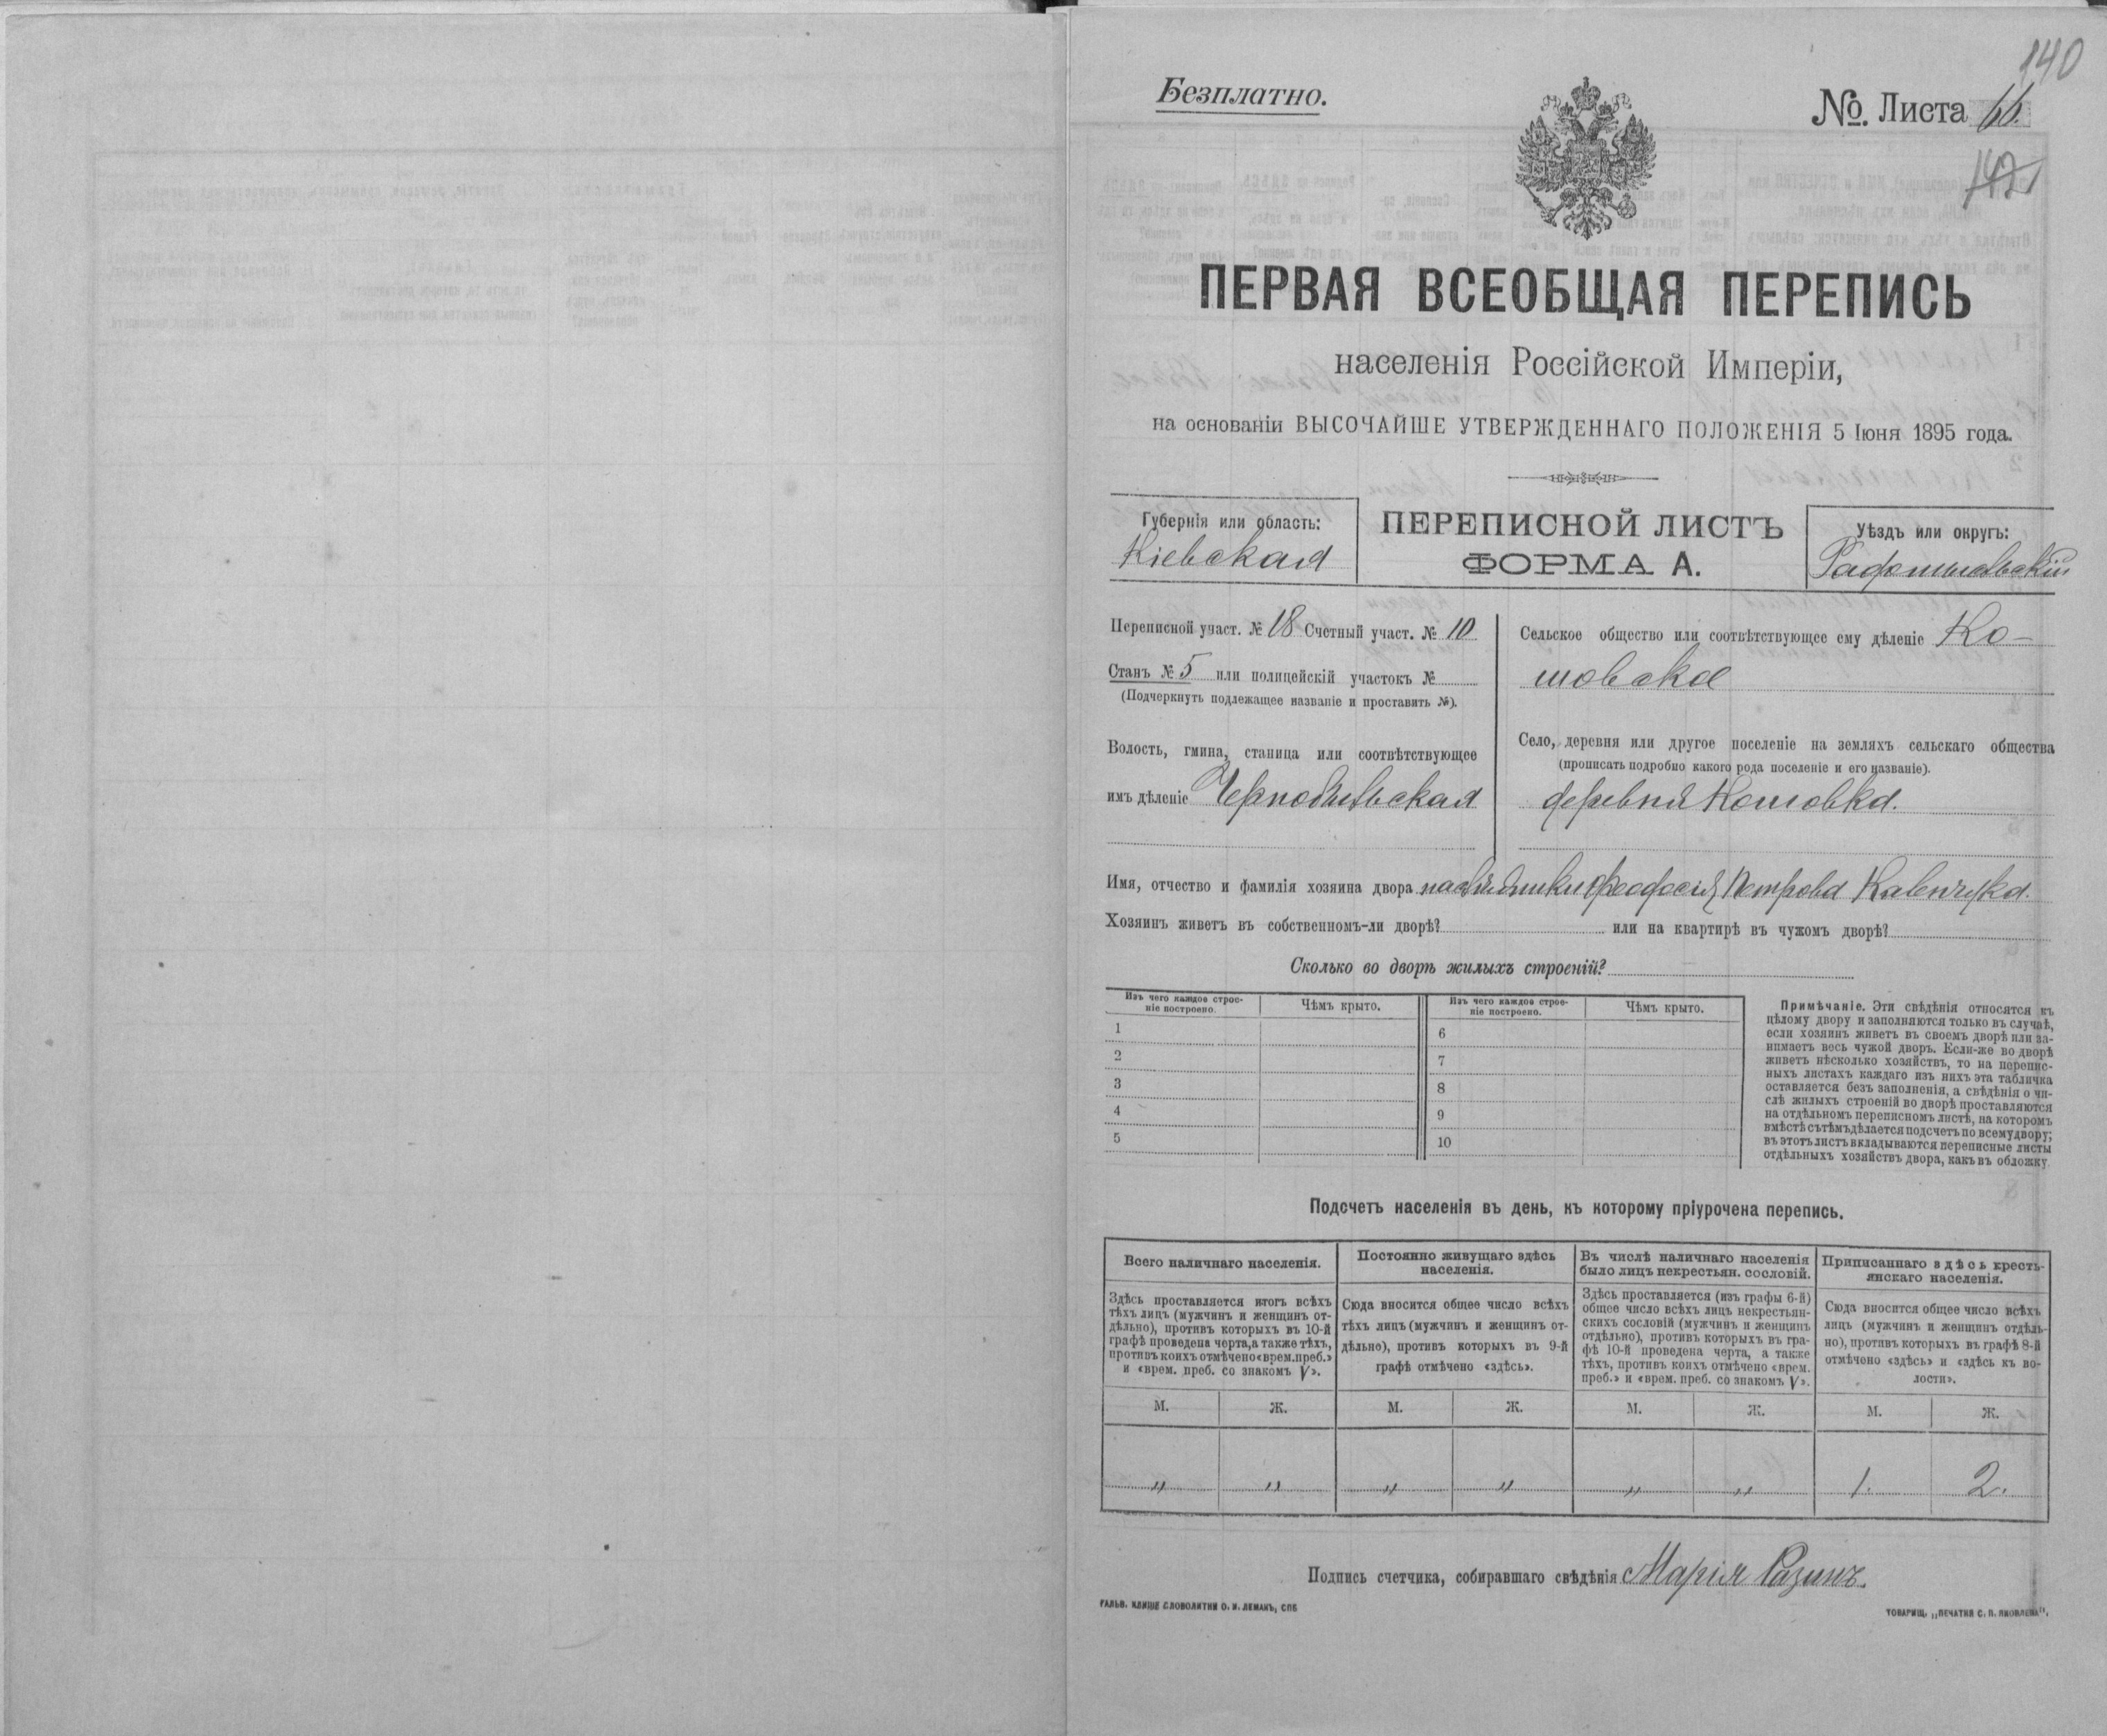 140
Безплатно.
№. Листа 66.
142
ПЕРВАЯ ВСЕОБЩАЯ ПЕРЕПИСЬ
населенія Россійской Имперіи,
на основаніи ВЫСОЧАЙШЕ УТВЕРЖДЕННАГО ПОЛОЖЕНІЯ 5 Іюня 1895 года.
Губернія или область:
Кіевская
ПЕРЕПИСНОЙ ЛИСТЪ
ФОРМА А.
Уѣздъ или округъ:
Радомысльскій
Переписной участ. № 18 Счетный участ. № 10
Станъ № 5 или полицейскій участокъ №
(Подчеркнуть подлежащее названіе и проставить №).
Волость, гмина, станица или соотвѣтствующее
имъ дѣленіе Чернобыльская
Сельское общество или соотвѣтствующее ему дѣленіе Ко-
шовское
Село, деревня или другое поселеніе на земляхъ сельскаго общества
(прописать подробно какого рода поселеніе и его названіе).
деревня Кошовка.
Имя, отчество и фамилія хозяина двора Петрова
Хозяинъ живетъ въ собственномъ-ли дворѣ? или на квартирѣ въ чужомъ дворѣ?
Сколько во дворѣ жилыхъ строеній?
Изъ чего каждое строе-
ніе построено.
Чѣмъ крыто.
Изъ чего каждое строе-
ніе построено.
Чѣмъ крыто.
1
2
3
4
5
6
7
8
9
10
Примѣчаніе. Эти свѣдѣнія относятся къ
цѣлому двору и заполняются только въ случаѣ,
если хозяинъ живетъ въ своемъ дворѣ или за-
нимаетъ весь чужой дворъ. Если-же во дворѣ
живетъ нѣсколько хозяйствъ, то на перепис-
ныхъ листахъ каждаго изъ нихъ эта табличка
оставляется безъ заполненія, а свѣдѣнія о чи-
слѣ жилыхъ строеній во дворѣ проставляются
на отдѣльномъ переписномъ листѣ, на которомъ
вмѣстѣ съ тѣмъ дѣлается подсчетъ по всему двору;
въ этотъ листъ вкладываются переписные листы
отдѣльныхъ хозяйствъ двора, какъ въ обложку
Подсчетъ населенія въ день, къ которому пріурочена перепись.
Всего наличнаго населенія.
Здѣсь проставляется итогъ всѣхъ
тѣхъ лицъ (мужчинъ и женщинъ от-
дѣльно), противъ которыхъ въ 10-й
графѣ проведена черта, а также тѣхъ,
противъ коихъ отмѣчено «врем. преб.»
и «врем. преб. со знакомъ V».
Постоянно живущаго здѣсь
населенія.
Сюда вносится общее число всѣхъ
тѣхъ лицъ (мужчинъ и женщинъ от-
дѣльно), противъ которыхъ въ 9-й
графѣ отмѣчено «здѣсь».
Въ числѣ наличнаго населенія
было лицъ некрестьян. сословій.
Здѣсь проставляется (изъ графы 6-й)
общее число всѣхъ лицъ некрестьян-
скихъ сословій (мужчинъ и женщинъ
отдѣльно), противъ которыхъ въ гра-
фѣ 10-й проведена черта, а также
тѣхъ, противъ коихъ отмѣчено «врем.
преб.» и «врем. преб. со знакомъ V».
Приписаннаго здѣсь кресть-
янскаго населенія.
Сюда вносится общее число всѣхъ
лицъ (мужчинъ и женщинъ отдѣль-
но), противъ которыхъ въ графѣ 8-й
отмѣчено «здѣсь» и «здѣсь къ во-
лости».
М. Ж. М. Ж. М. Ж. М. Ж.
" " " " " " 1. 2.
Подпись счетчика, собиравшаго свѣдѣнія Марія
ГАЛЬВ. КЛИШЕ СЛОВОЛИТНИ О. И. ЛЕМАНЪ, СПБ
ТОВАРИЩ. „ПЕЧАТНЯ С. П. ЯКОВЛЕВА".